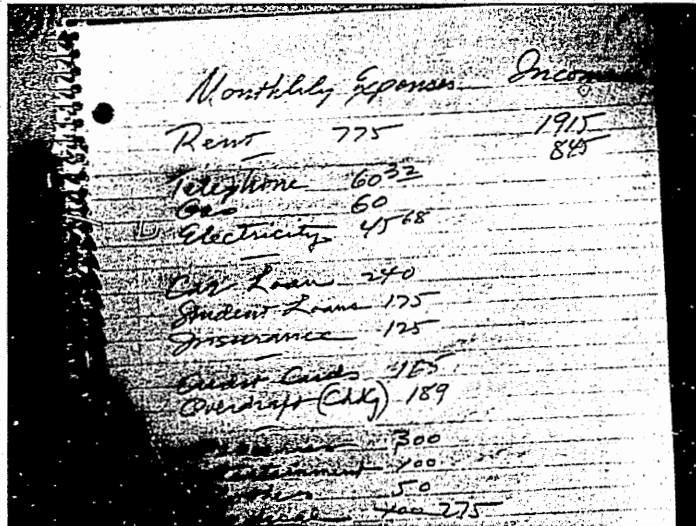 Monthlily Expenses Income
Rent 775 1915
845
Telephone 60 32
Gas 60
Electricity 45 68
Car Loan 240
Student Loans 175
Insurance 125
Credit Cards
Overdraft (Chkg) 189
300
50
775